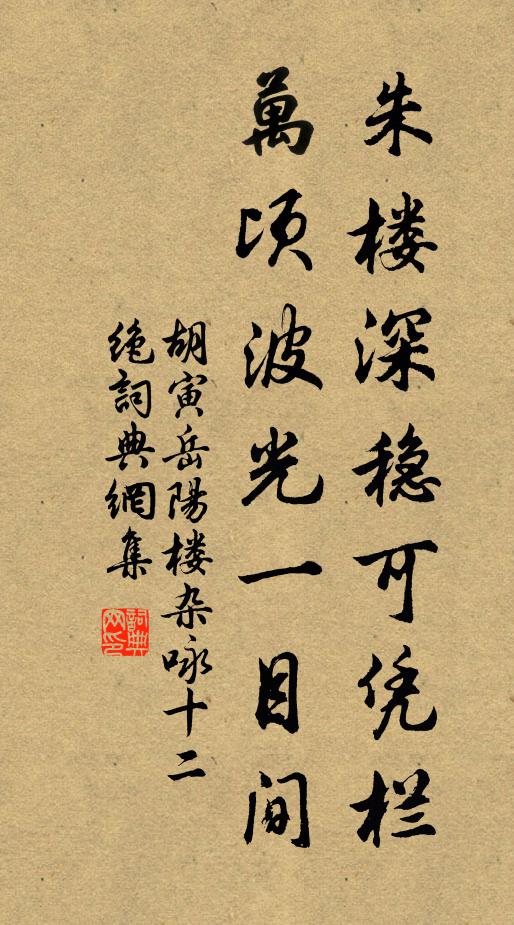 朱楼深稳可凭栏
萬顷波光一目间
胡寅岳陽楼杂咏十二
绝詞典網集
詞典网印